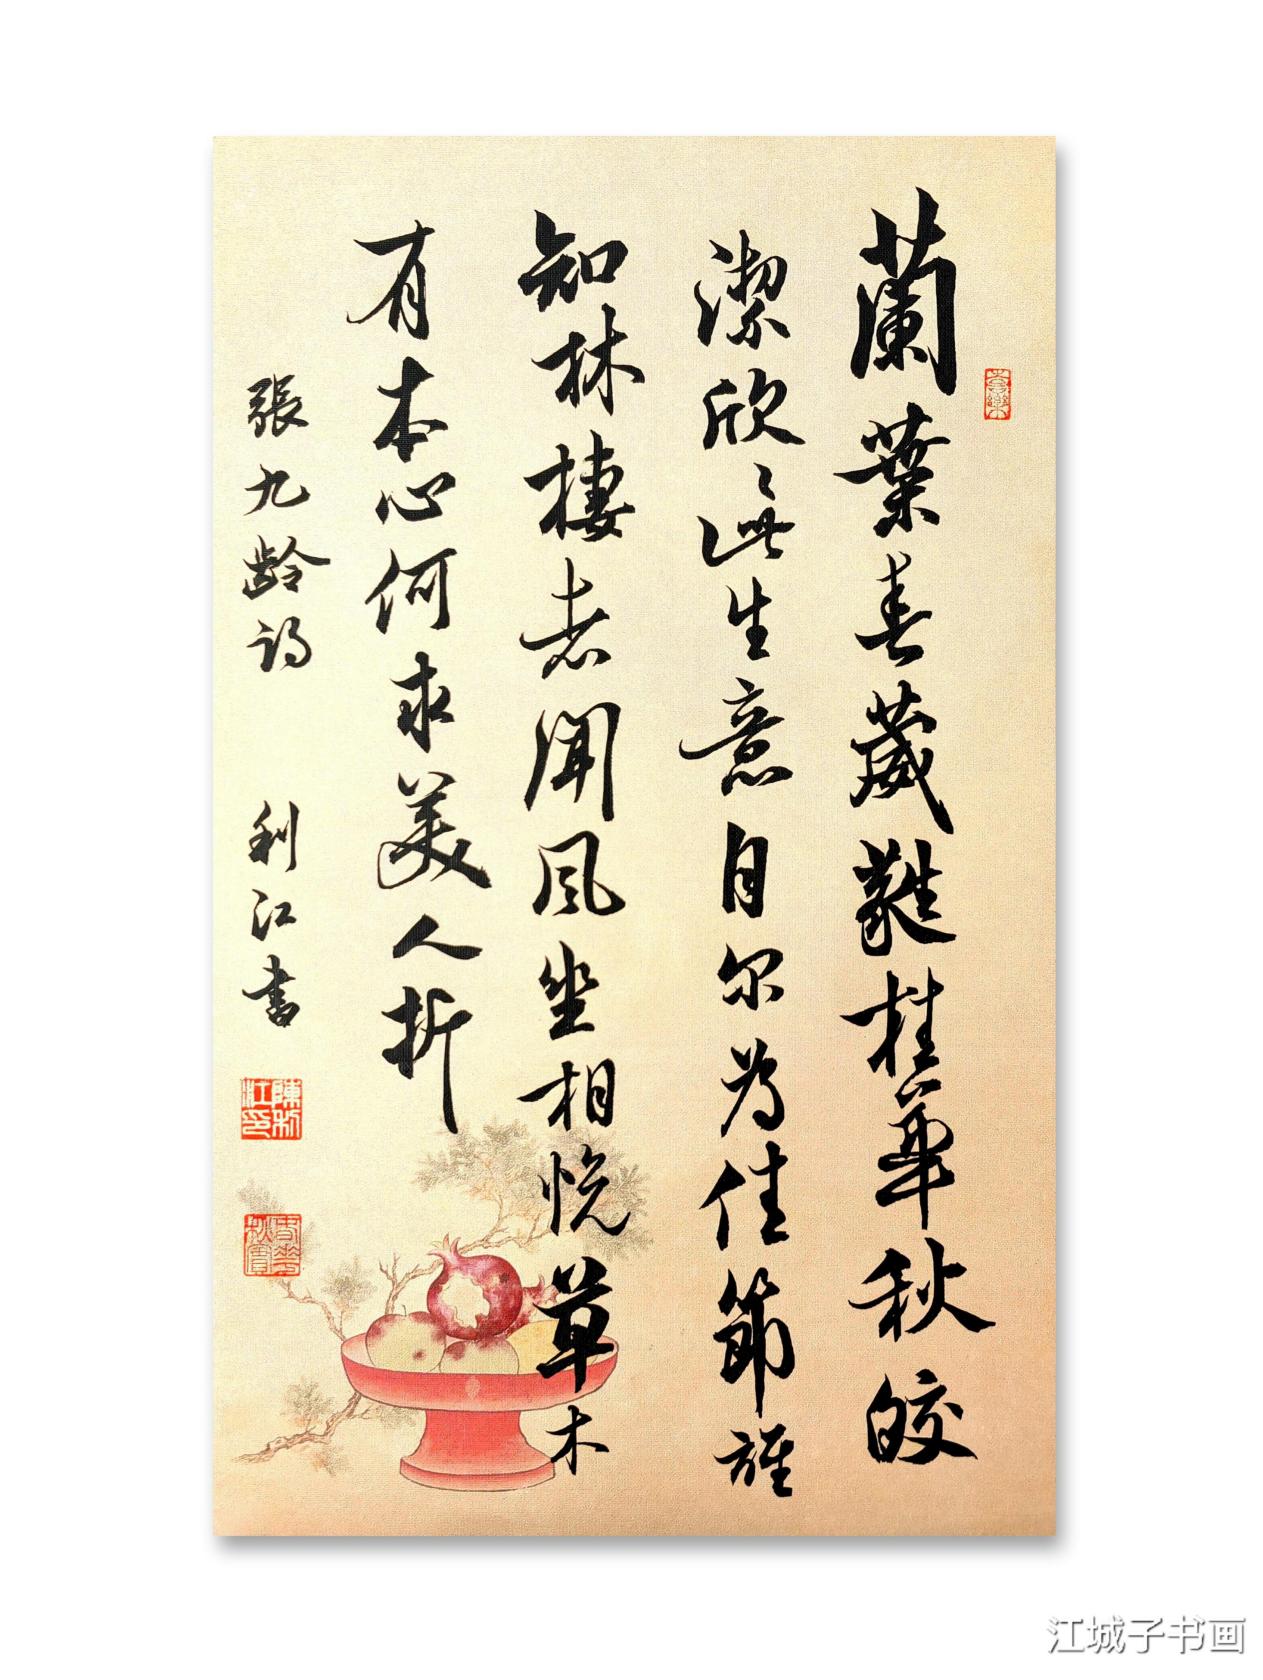 蘭葉春葳蕤桂華秋皎
潔欣〻此生意自尔為佳節誰
知林棲者聞風坐相悅草木
有本心何求美人折
張九齡詩 利江書
陳利江印
春華秋實
江城子书画